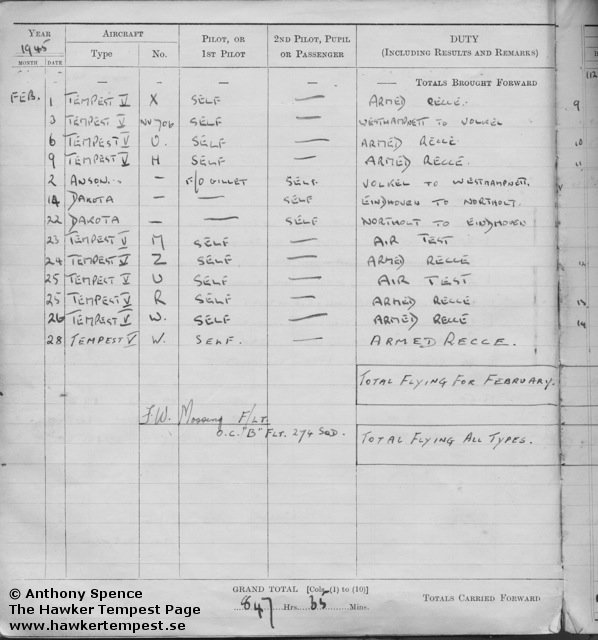 YEAR AIRCRAFT PILOT, OR 2ND PILOT, PUPIL DUTY
1945 Type No. 1ST PILOT OR PASSENGER (INCLUDING RESULTS AND REMARKS)
MONTH DATE
— — — — —— TOTALS BROUGHT FORWARD 112
FEB. 1 TEMPEST V X SELF — ARMED RECCE. 9
3 TEMPEST V NV706 SELF — WESTHAMPNETT TO VOLKEL
6 TEMPEST V U. SELF — ARMED RECCE. 10
9 TEMPEST V H SELF — ARMED RECCE. 11
2 ANSON. — F/O GILLET SELF VOLKEL TO WESTHAMPNETT.
14 DAKOTA — — SELF EINDHOVEN TO NORTHOLT.
22 DAKOTA — — SELF NORTHOLT TO EINDHOVEN
23 TEMPEST V M SELF — AIR TEST
24 TEMPEST V Z SELF. — ARMED RECCE 12
25 TEMPEST V U SELF — AIR TEST
25 TEMPEST V R SELF — ARMED RECCE 13
26 TEMPEST V W. SELF — ARMED RECCE 14
28 TEMPEST V W. SELF. — ARMED RECCE.
TOTAL FLYING FOR FEBRUARY.
F.W. Mossing F/LT.
O.C. "B" FLT. 274 SQD.
TOTAL FLYING ALL TYPES.
GRAND TOTAL [Cols. (1) to (10)]
847 Hrs. 35 Mins.
TOTALS CARRIED FORWARD
© Anthony Spence
The Hawker Tempest Page
www.hawkertempest.se